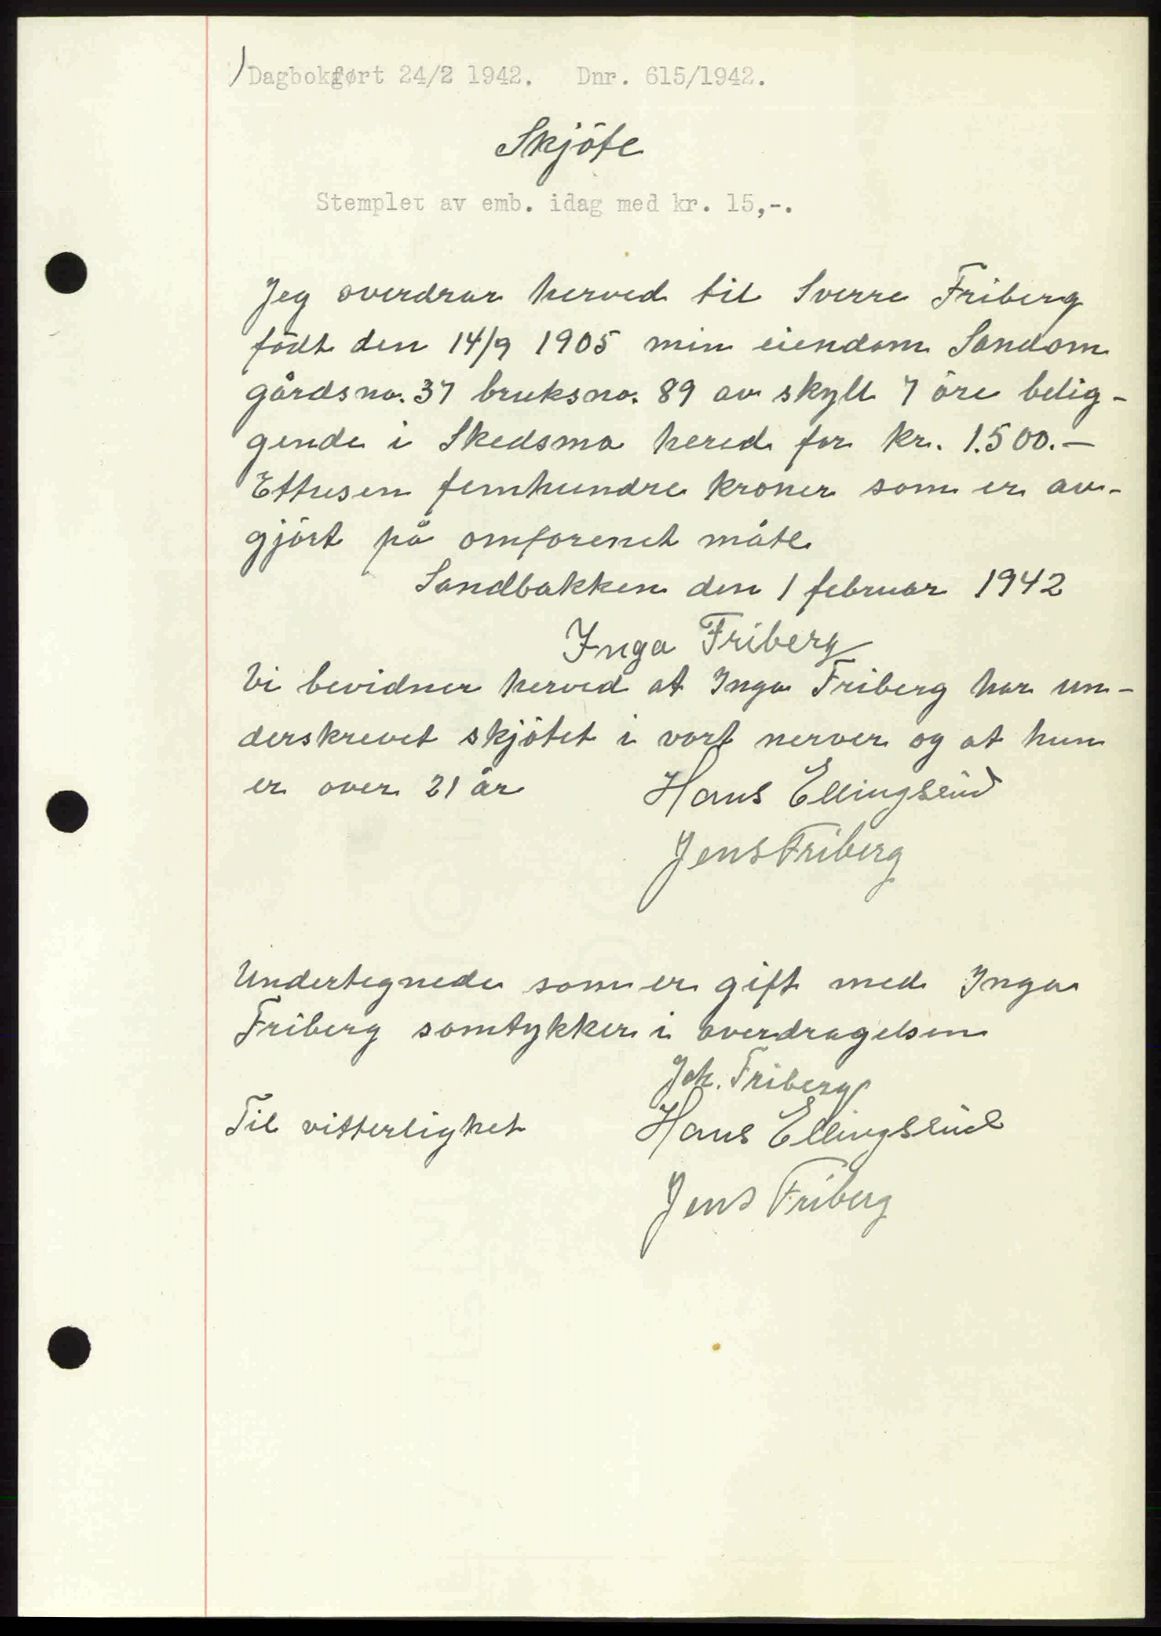 ) Dagbokført 24/2 1942. Dnr. 615/1942.
Skjöte
Stemplet av emb. idag med kr. 15,-.
Jeg overdrar herved til Sverre Friberg
födt den 14/9 1905 min eiendom Sandom
gårdsno. 37 bruksno. 89 av skyll 7 öre belig-
gende i Skedsmo hered for kr. 1.500.—
Ettusen femhundre kroner som er av-
gjört på omforenet måte
Sandbakken den 1 februar 1942
Inga Friberg
Vi bevidner herved at Inga Friberg har un-
derskrevet skjötet i vort nerver og at hun
er over 21 år Hans Ellingsrud
Jens Friberg
Undertegnede som er gift med Inga
Friberg samtykker i overdragelsen
Joh. Friberg
Til vitterlighet Hans Ellingsrud
Jens Friberg